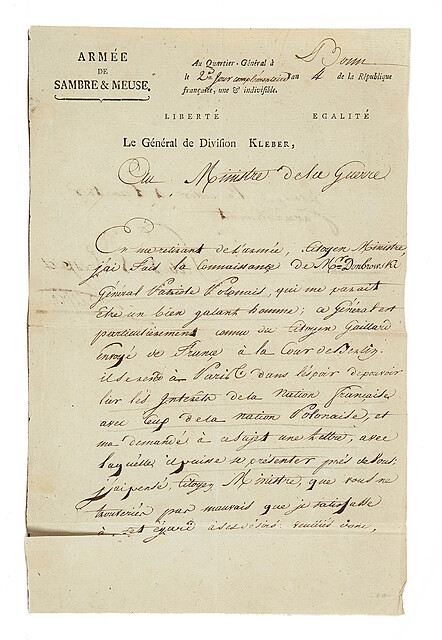 ARMÉE
DE
SAMBRE & MEUSE.
Au Quartier-Général à Bonn
le 2.me Jour complémentaire an 4 de la République
française, une & indivisible.
LIBERTÉ EGALITÉ
Le Général de Division KLEBER,
Au Ministre de la Guerre
En me retirant de l'armée, Citoyen Ministre,
j'ai fait la Connaissance de Mr. Dombrowski
Général Patriote Polonais, qui me parait
être un bien galant homme; ce Général est
particulièrement connu du Citoyen Gaillard
envoyé de France à la Cour de Berlin.
il se rend à Paris dans l'espoir de pouvoir
lier les Interêts de la Nation française
avec ceux de la nation Polonaise, et
m'a demandé à ce sujet une lettre, avec
laquelle il puisse se présenter près de vous;
j'ai pensé, Citoyen Ministre, que vous ne
trouveriez pas mauvais que je satisfasse
à cet égard à ses désirs veuillés donc,